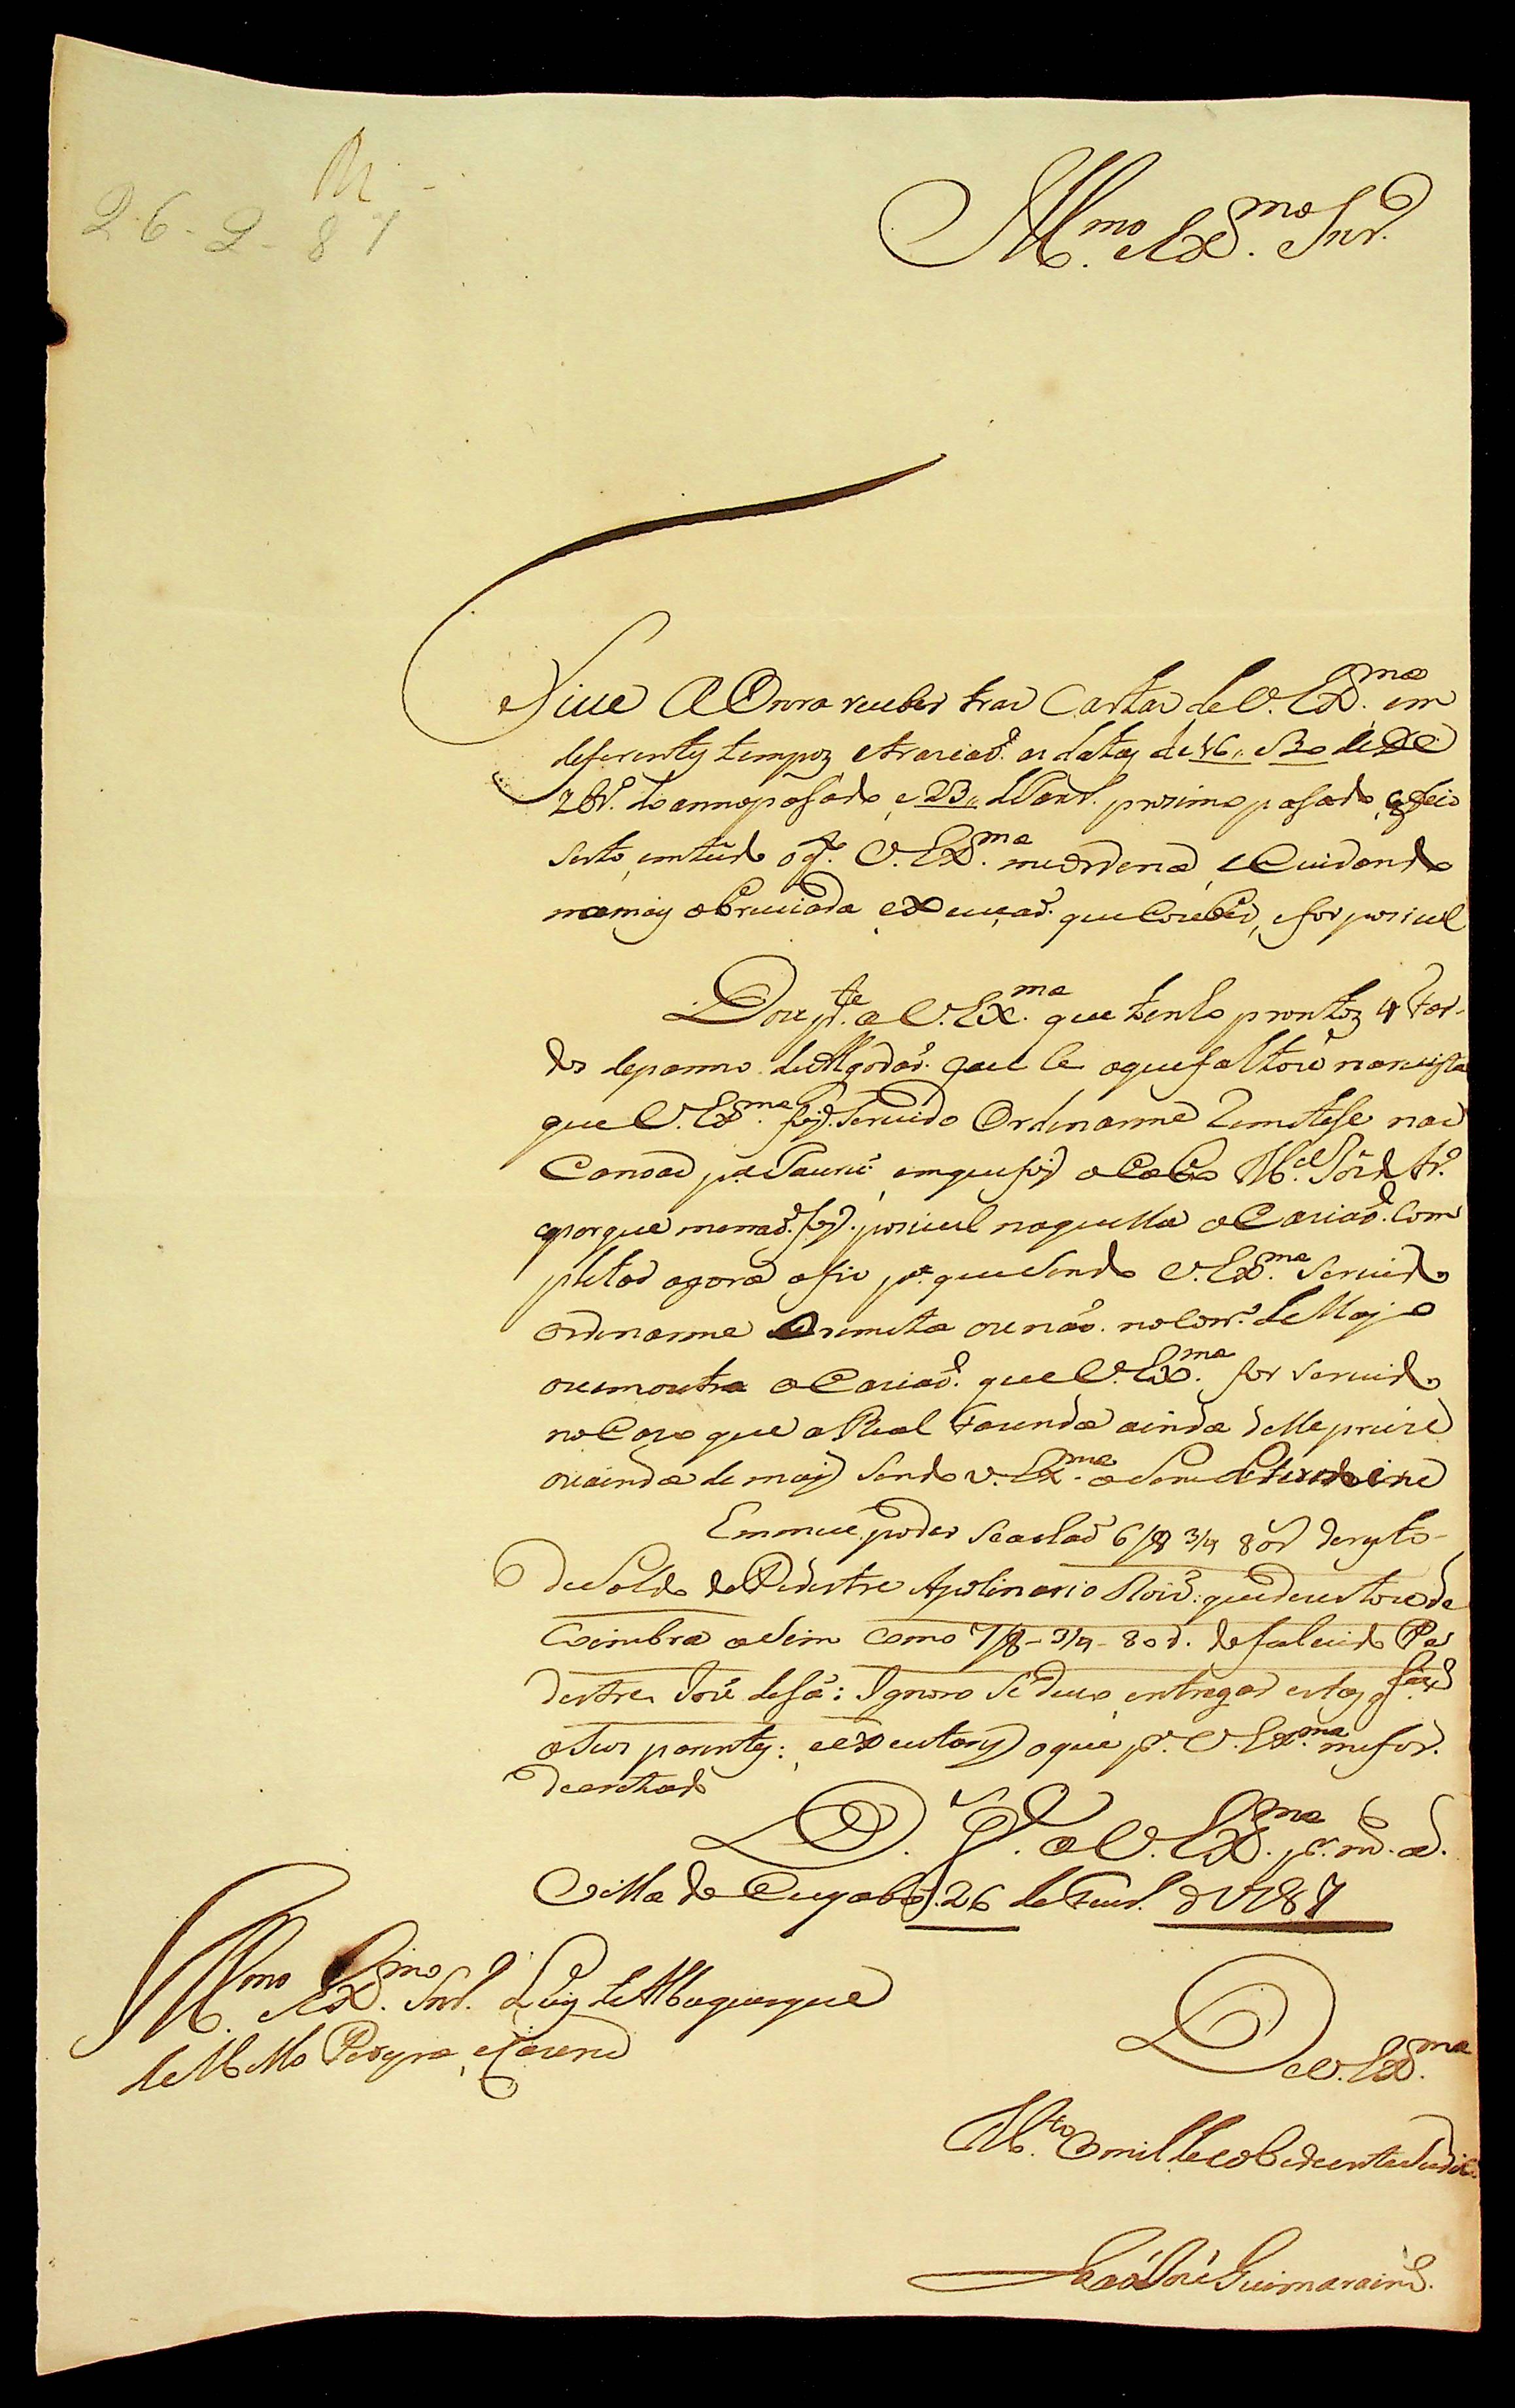 M
26-2-87
Ill.mo e Ex.mo Snr.
Tive a Onra receber tras Cartas de V. Ex.ma em
deferentes tempos e trasiaõ as datas de 16,, e 30 de De
zbr. do anno pasado, e 23,, de Janr. prosimo pasado, e fico
serto, em tudo o q. V. Ex.ma me ordena, e Cuidando
na mais abreviada execuçaõ que Couber, e for posivel
Dou p.te a V. Ex.ma que tenho prontos 4 Far-
dos de panno de Algodaõ que he o que faltou na remesta
que V. Ex.ma foy servido Ordenarme Remetese nas
Canoas p.a Jaurú em que foy o Cabo M.el José Fr.
e porque me naõ foy posivel naquella ocaziaõ Com
pletas agora o fis p.a que sendo V. Ex.ma servido
ordenarme o remeta ou naõ no Corr. de Mayo
ou em outra ocaziaõ que V. Ex.ma for servido
no Cazo que a Real Fazenda ainda delle precize
ou ainda de mais sendo V. Ex.ma
Em meu poder se achaõ 6/8 3/4 8 d resto
de Soldo do Pedestre Apolinario Roiz: que dezertou de
Coimbra asim como 7/8-3/4-8 d. do falecido Pe
destre José de Sá: Ignoro se devo entregar estas q
a seus parentes: e executarey o que p.r V. Ex.ma me for
decretado
D. G. a V. Ex.ma p.r m. a.
Villa do Cuyabá. 26 de Feur. de 1787
Ill.mo e Ex.mo Snr. Luis de Albuquerque
de Mello Pereyra, e Caceres
De V. Ex.ma
M.to Omilde e obediente Sudito
Joaõ José Guimaraens.